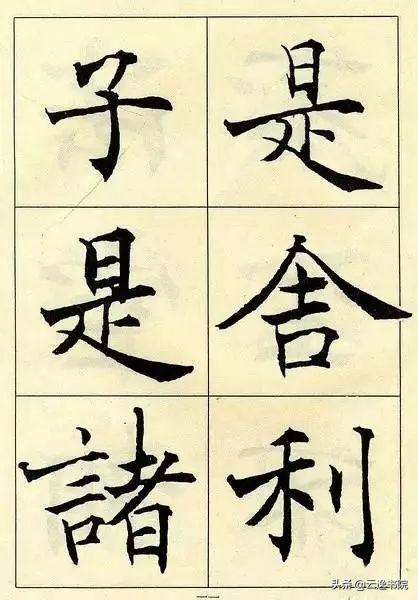 是舍利
子是諸
一一
头条 @云逸书院